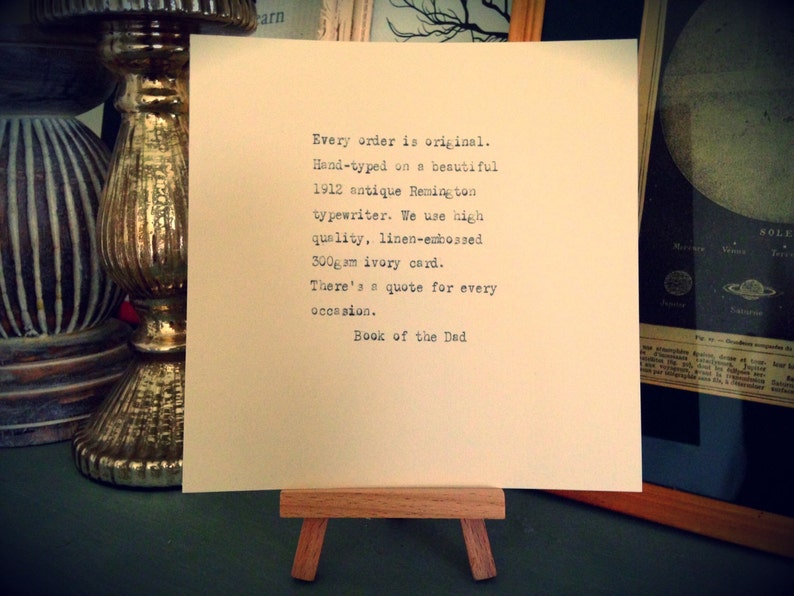 Every order is original.
Hand-typed on a beautiful
1912 antique Remington
typewriter. We use high
quality, linen-embossed
300gsm ivory card.
There's a quote for every
occasion.
Book of the Dad
earn
SOLE
Mercure Venus Terre
Jupiter
Saturne